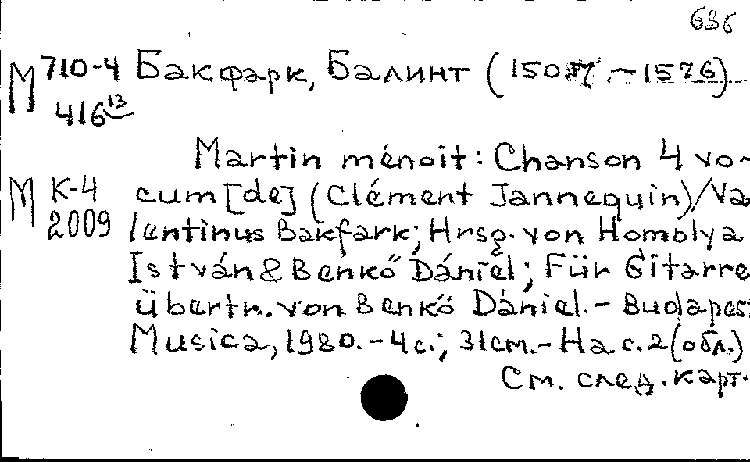 636
М 710-4 Бакфарк, Балинт (1507 - 1576)
416 13
Martin menoit: Chanson 4 vo-
М К-4 cum [de] (Clément Jannequin)/Va
2009 lentinus Bakfark; Hrsg. von Homolya
István & Benkő Dániel; Für Gitarre
übertr. von Benkő Dániel. - Budapest
Musica, 1980. - 4 с.; 31 cm. - На с. 2 (обл.)
См. след. карт.